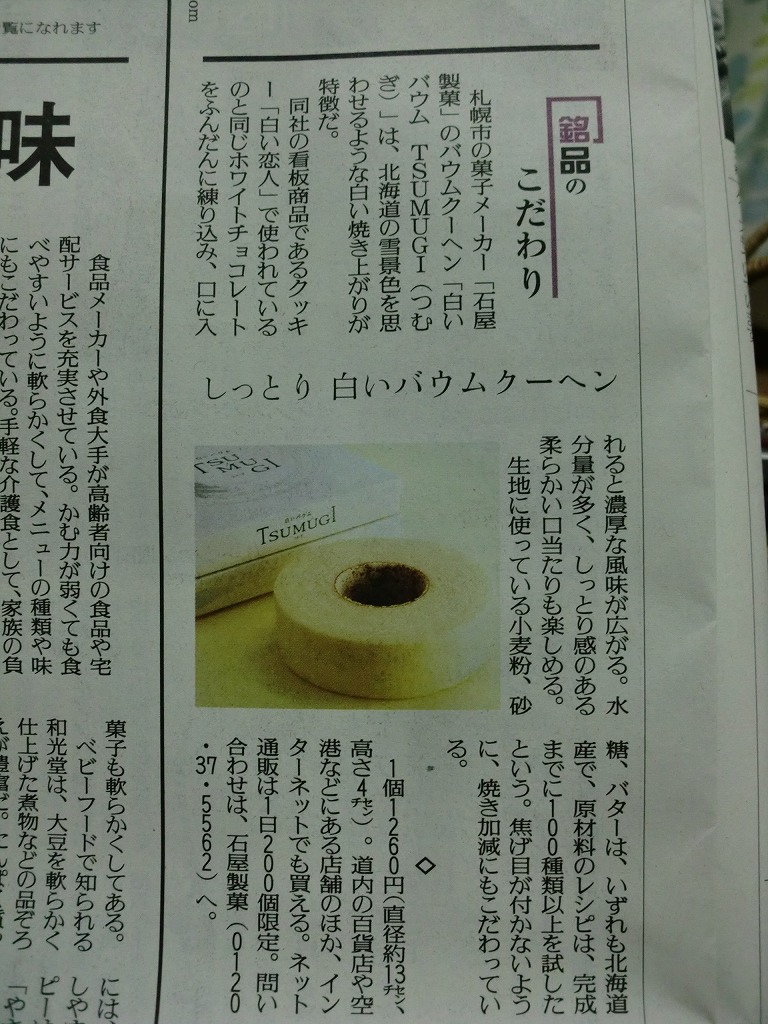 覧になれます
com
味
銘品の
こだわり
札幌市の菓子メーカー「石屋
製菓」のバウムクーヘン「白い
バウム　ＴＳＵＭＵＧＩ（つむ
ぎ）」は、北海道の雪景色を思
わせるような白い焼き上がりが
特徴だ。
同社の看板商品であるクッキ
ー「白い恋人」で使われている
のと同じホワイトチョコレート
をふんだんに練り込み、口に入
しっとり 白いバウムクーヘン
れると濃厚な風味が広がる。水
分量が多く、しっとり感のある
柔らかい口当たりも楽しめる。
生地に使っている小麦粉、砂
TSUMUGI
白いバウム
TSUMUGI
糖、バターは、いずれも北海道
産で、原材料のレシピは、完成
までに１００種類以上を試した
という。焦げ目が付かないよう
に、焼き加減にもこだわってい
る。
◇
１個１２６０円（直径約13㌢、
高さ４㌢）。道内の百貨店や空
港などにある店舗のほか、イン
ターネットでも買える。ネット
通販は１日２００個限定。問い
合わせは、石屋製菓（０１２０
・37・５５６２）へ。
食品メーカーや外食大手が高齢者向けの食品や宅
配サービスを充実させている。かむ力が弱くても食
べやすいように軟らかくして、メニューの種類や味
にもこだわっている。手軽な介護食として、家族の負
菓子も軟らかくしてある。
ベビーフードで知られる
和光堂は、大豆を軟らかく
仕上げた煮物などの品ぞろ
えが豊富だ。
には、
しやす
ピーは
「や